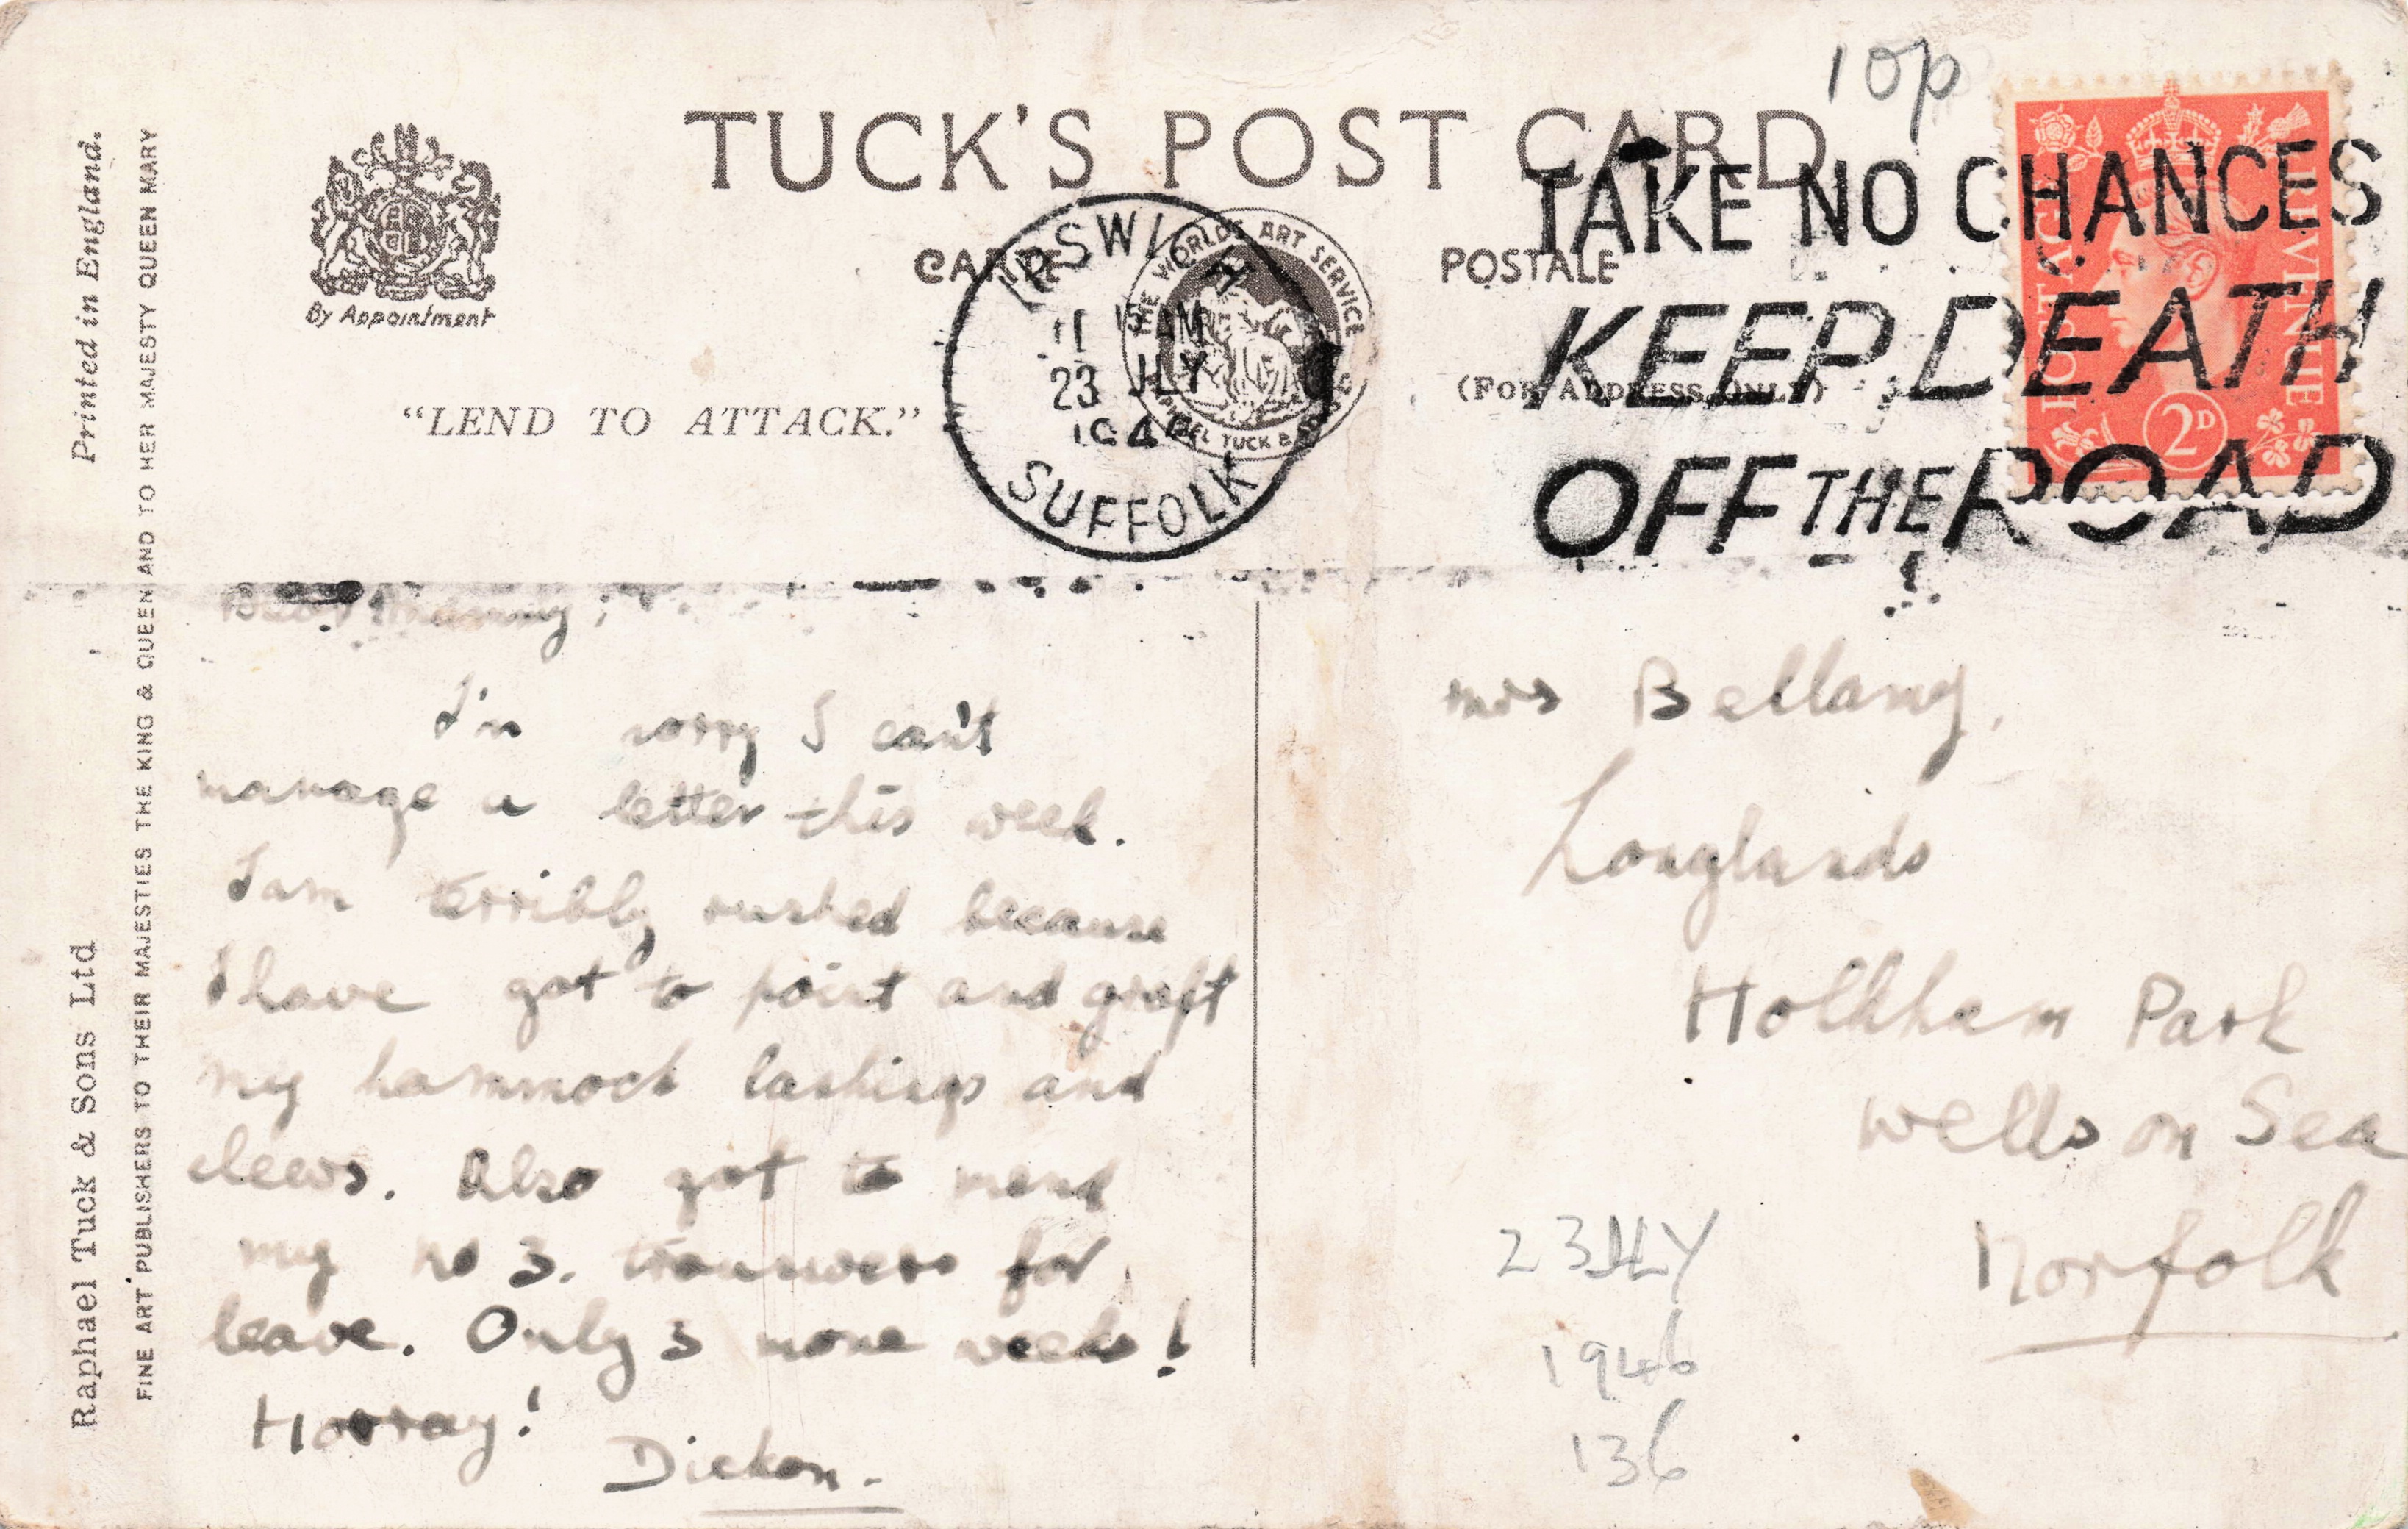 10p
TUCK'S POST CARD
CARTE POSTALE
By Appointment
"LEND TO ATTACK."
(FOR ADDRESS ONLY)
THE WORLD'S ART SERVICE
RAPHAEL TUCK & SONS LTD
IPSWICH
11 15 AM
23 JLY
194
SUFFOLK
TAKE NO CHANCES
KEEP DEATH
OFF THE ROAD
POSTAGE REVENUE
2D
Printed in England.
Raphael Tuck & Sons Ltd
FINE ART PUBLISHERS TO THEIR MAJESTIES THE KING & QUEEN AND TO HER MAJESTY QUEEN MARY
Dear Mummy,
I'm sorry I can't
manage a letter this week.
I am terribly rushed because
I have got to point and graft
my hammock lashings and
clews. Also got to mend
my no 3. trouwsers for
leave. Only 3 more weeks!
Horray!
Dickon.
Mrs Bellamy,
Longlands
Holkham Park
Wells on Sea
Norfolk
23 JLY
1946
136